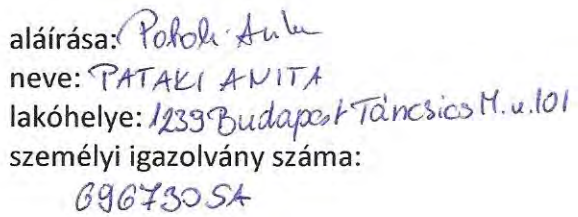 aláírása: Pataki Anita
neve: PATAKI ANITA
lakóhelye: 1239 Budapest Táncsics M. u. 101
személyi igazolvány száma:
696730SA